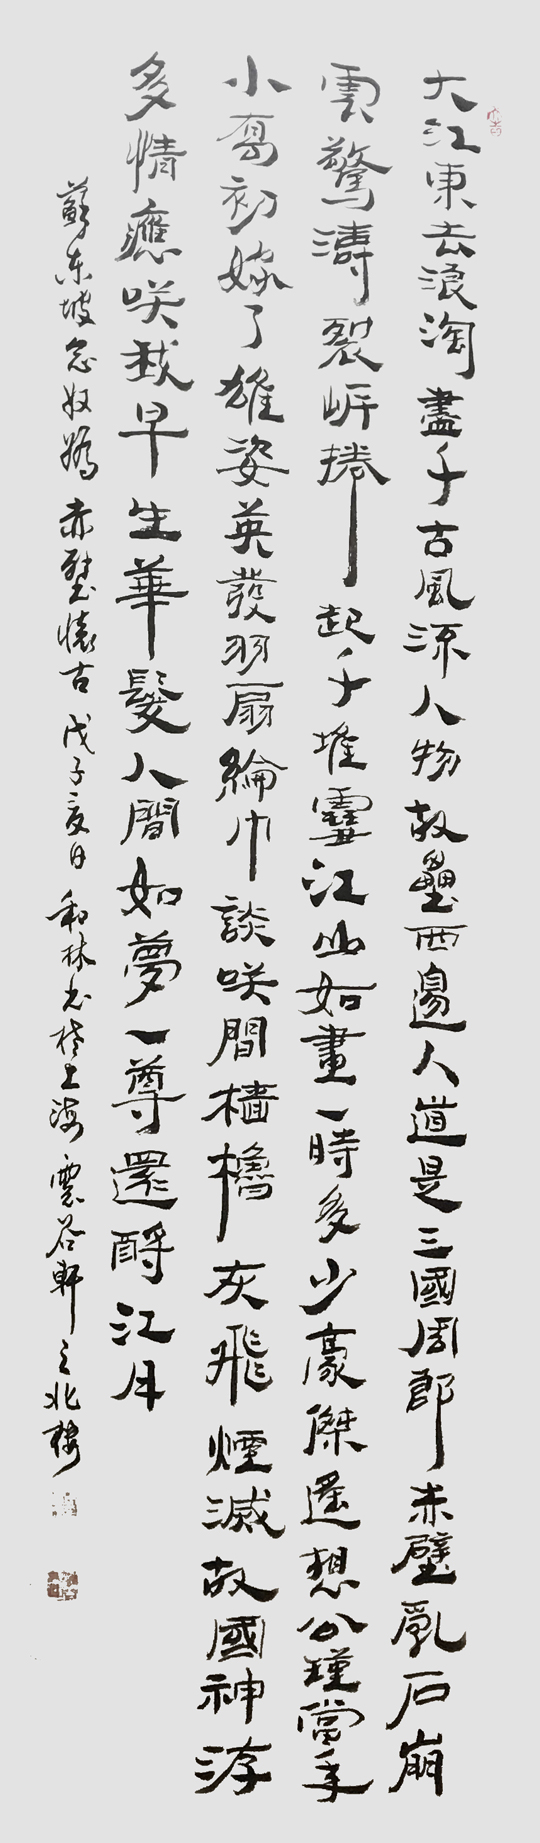 大江東去浪淘盡千古風流人物故壘西邊人道是三國周郎赤壁亂石崩
雲驚濤裂岸捲起千堆雪江山如畫一時多少豪傑遙想公瑾當年
小喬初嫁了雄姿英發羽扇綸巾談咲間檣櫓灰飛煙滅故國神游
多情應咲我早生華髮人間如夢一尊還酹江月
蘇東坡念奴嬌赤壁懷古戊子夏日和林書於上海雲谷軒之北樓